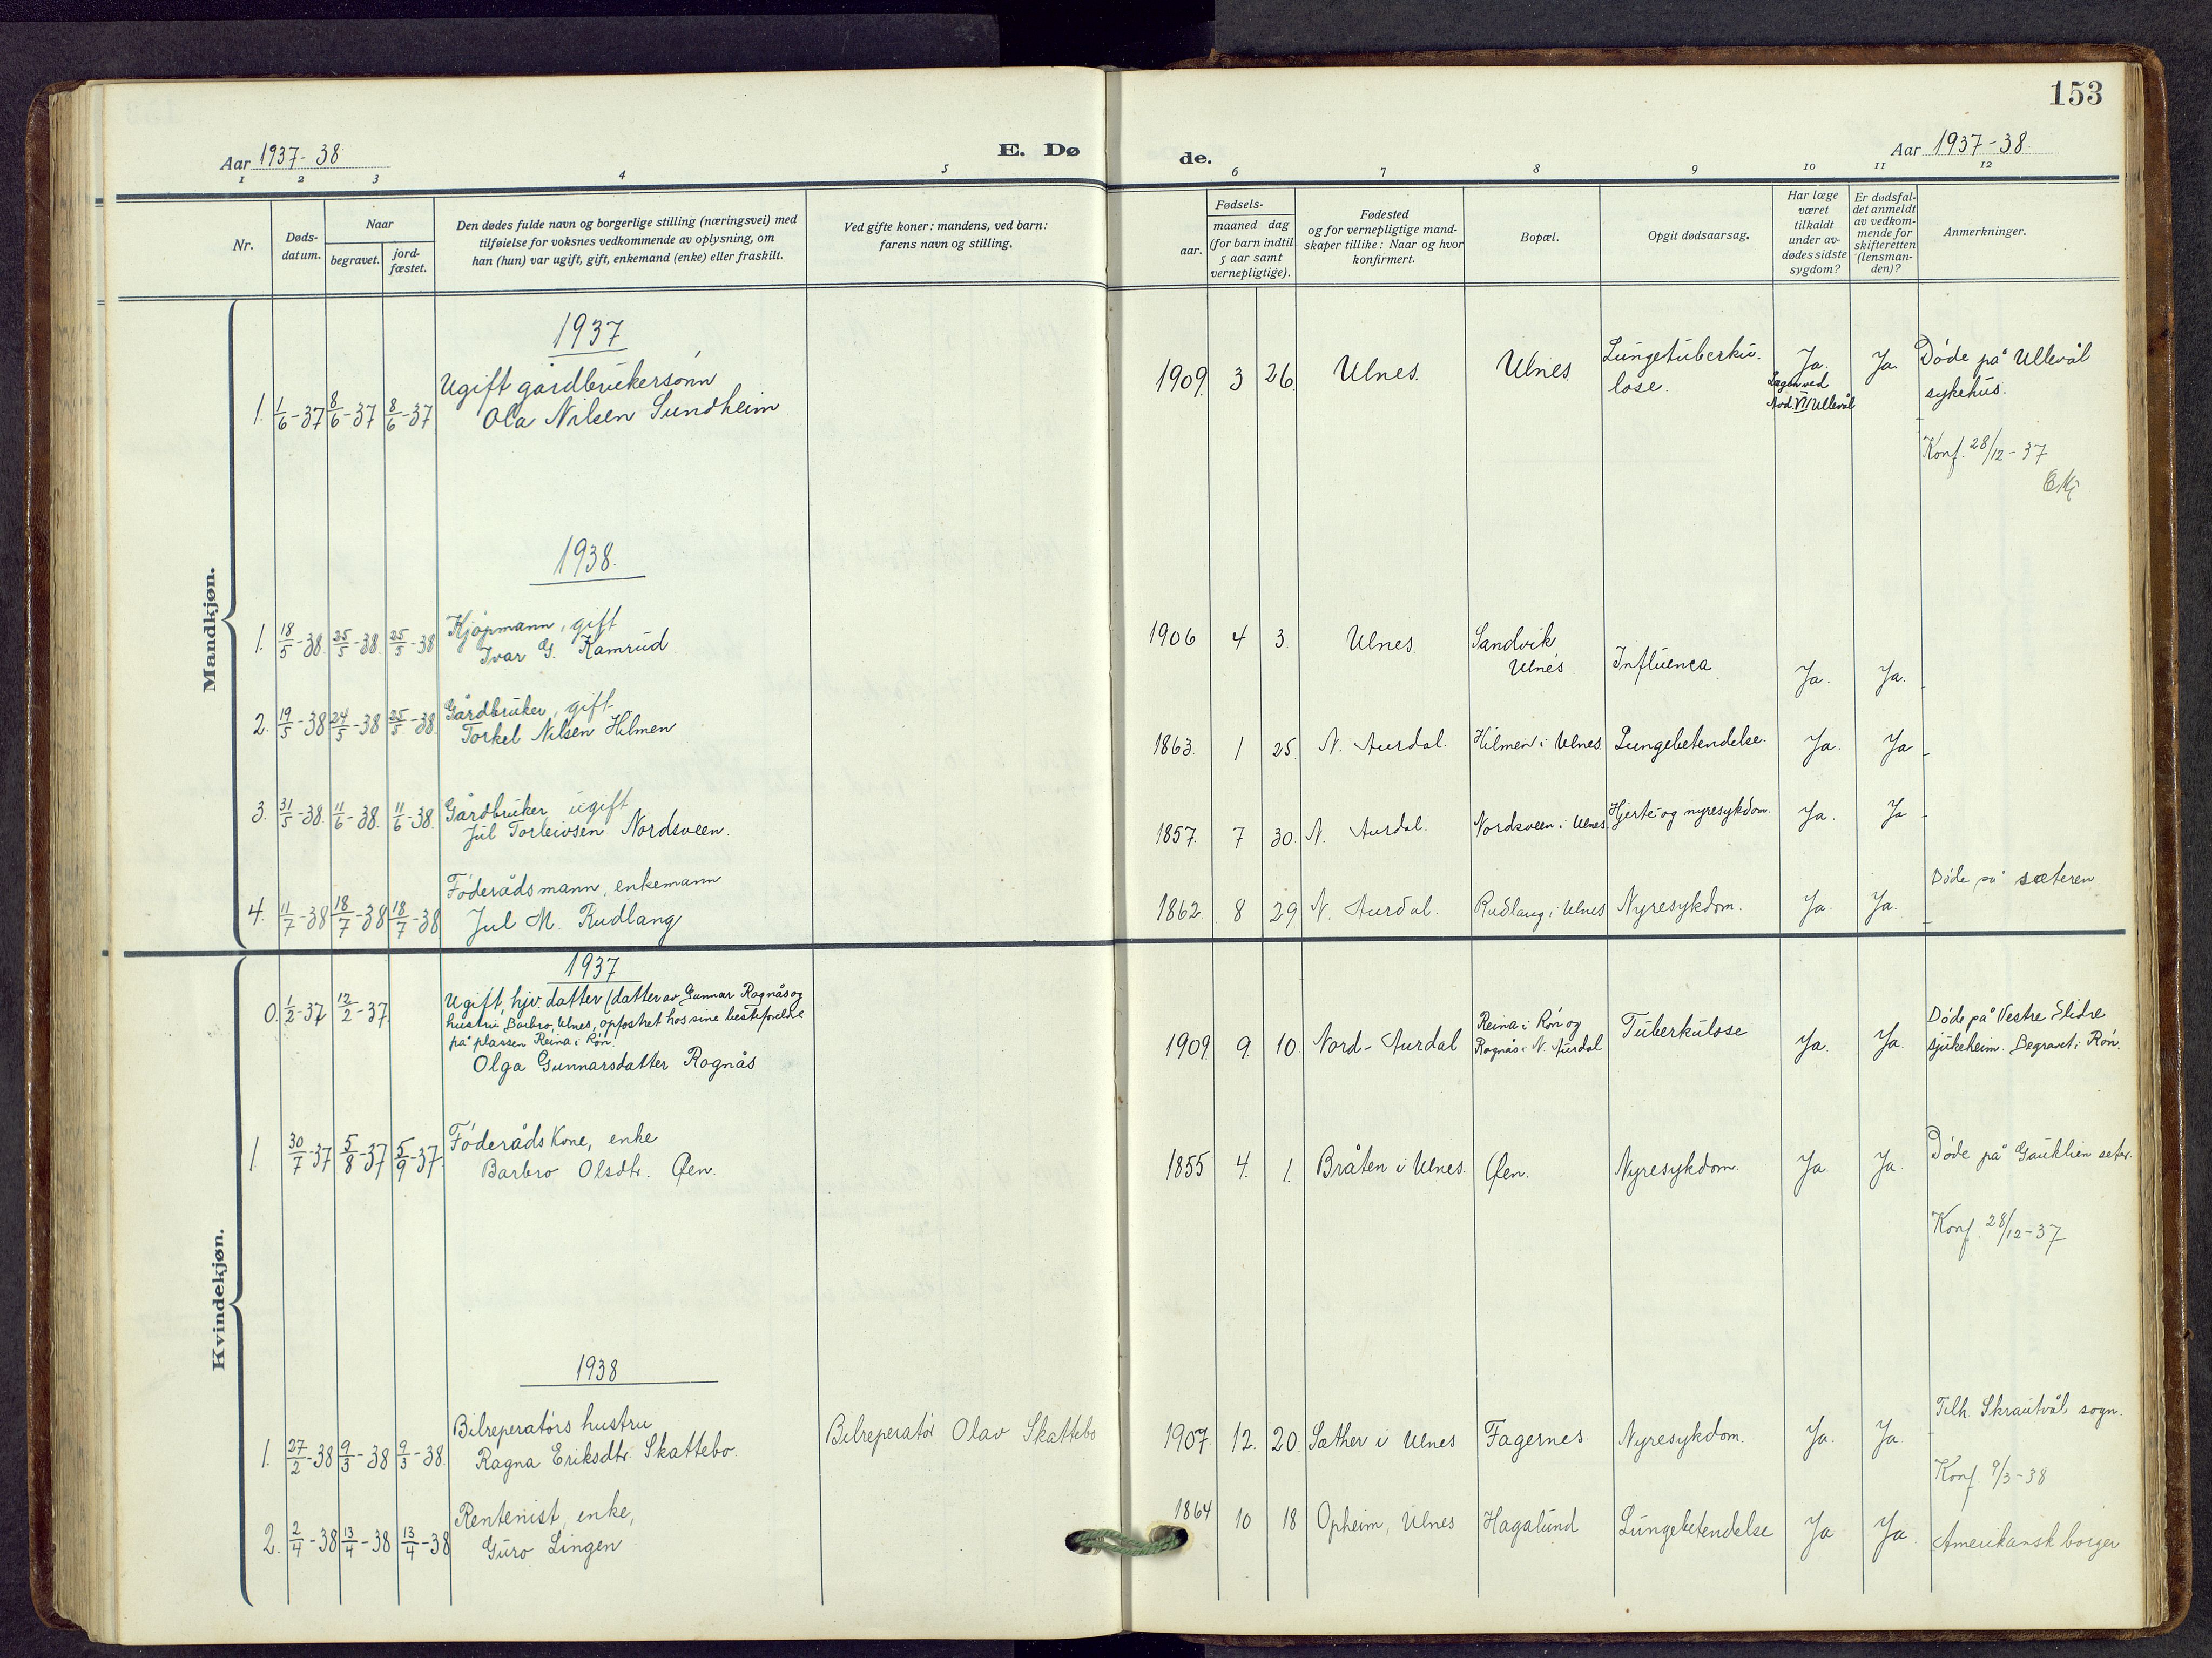 153
Aar 1937-38
E. Dø
de.
Aar 1937-38.
1 2 3 4 5 6 7 8 9 10 11 12
Nr.
Døds-
datum.
Naar
begravet.
jord-
fæstet.
Den dødes fulde navn og borgerlige stilling (næringsvei) med
tilføielse for voksnes vedkommende av oplysning, om
han (hun) var ugift, gift, enkemand (enke) eller fraskilt.
Ved gifte koner: mandens, ved barn:
farens navn og stilling.
Fødsels-
aar.
maaned dag
(for barn indtil
5 aar samt
vernepligtige).
Fødested
og for vernepligtige mand-
skaper tillike: Naar og hvor
konfirmert.
Bopæl.
Opgit dødsaarsag.
Har læge
været
tilkaldt
under av-
dødes sidste
sygdom?
Er dødsfal-
det anmeldt
av vedkom-
mende for
skifteretten
(lensman-
den)?
Anmerkninger.
Mandkjøn.
1937
1. 1/6-37 8/6-37 8/6-37 Ugift gårdbrukersønn
Ola Nilsen Sundheim
1909. 3 26. Ulnes. Ulnes. Lungetuberku-
lose.
Ja.
Lægen ved
Avd. VII Ullevål
Ja. Døde på Ullevål
sykehus.
Konf. 28/12-37
1938.
1. 18/5-38. 25/5-38. 25/5-38 Kjøpmann, gift
Ivar G. Kamrud
1906 4 3. Ulnes. Sandvik
Ulnes. Influenca Ja. Ja.
2. 19/5-38 24/5-38 25/5-38. Gårdbruker, gift
Torkel Nilsen Hilmen
1863. 1 25. N. Aurdal. Hilmen i Ulnes Lungebetendelse. Ja. Ja
3. 31/5-38. 11/6-38. 11/6-38. Gårdbruker, ugift
Jul Torleivsen Nordsveen.
1857. 7 30. N. Aurdal. Nordsveen i Ulnes Hjerte og nyresykdom. Ja. Ja
4. 11/7-38 18/7-38 18/7-38 Føderådsmann, enkemann
Jul M. Rudlang
1862. 8 29. N. Aurdal. Rudlang i Ulnes Nyresykdom. Ja. Ja. Døde på sæteren
Kvindekjøn.
1937
0. 1/2-37 12/2-37. Ugift, hjv. datter (datter av Gunnar Rognås og
hustru Barbro, Ulnes, opfostret hos sine besteforeldre
på plassen Reina i Røn.
Olga Gunnarsdatter Rognås
1909. 9. 10. Nord-Aurdal Reina i Røn og
Rognås i N. Aurdal Tuberkulose Ja. Ja. Døde på Vestre Slidre
sjukeheim. Begravet i Røn.
1. 30/7-37 5/8-37 5/9-37. Føderådskone, enke
Barbro Olsdtr. Øen.
1855 4. 1. Bråten i Ulnes. Øen. Nyresykdom. Ja. Ja. Døde på Gauklien seter.
Konf. 28/12-37
1938
1. 27/2-38 9/3-38 9/3-38. Bilreperatørs hustru
Ragna Eriksdtr. Skattebo.
Bilreperatør Olav Skattebo
1907. 12. 20. Sæther i Ulnes Fagernes. Nyresykdom. Ja. Ja. Tilh. Skrautvål sogn.
Konf. 9/3-38
2. 2/4-38 13/4-38 13/4-38 Rentenist, enke,
Guro Lingen
1864 10 18 Opheim, Ulnes Hagalund Lungebetendelse Ja Ja. Amerikansk borger